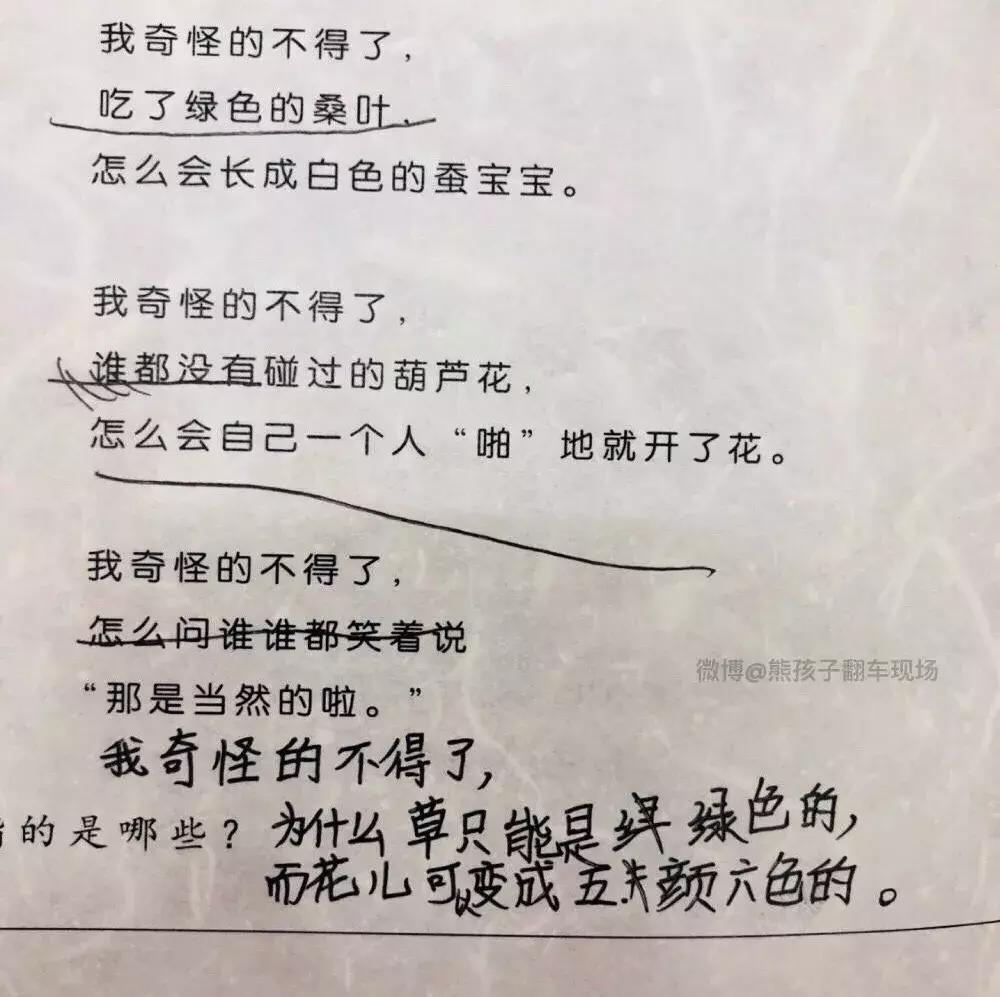 我奇怪的不得了,
吃了绿色的桑叶,
怎么会长成白色的蚕宝宝。
我奇怪的不得了,
谁都没有碰过的葫芦花,
怎么会自己一个人“啪”地就开了花。
我奇怪的不得了,
怎么问谁谁都笑着说
“那是当然的啦。”
微博@熊孩子翻车现场
我奇怪的不得了,
的是哪些?
为什么草只能是绿色的,
而花儿可以变成五颜六色的。